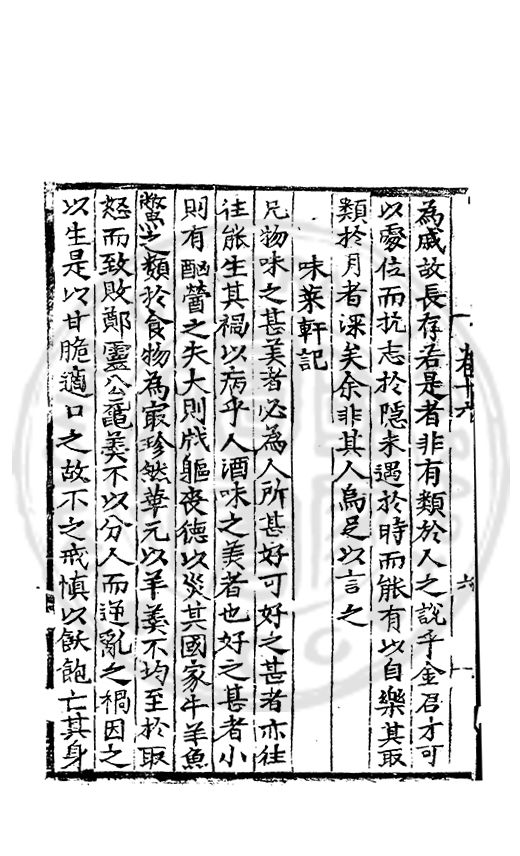 卷十六
六
為戚故長存若是者非有類於人之說乎金君才可
以處位而抗志於隱未遇於時而能有以自樂其取
類於月者深矣余非其人烏足以言之
味菜軒記
凡物味之甚美者必為人所甚好可好之甚者亦往
往能生其禍以病乎人酒味之美者也好之甚者小
則有酗醟之失大則戕軀喪德以災其國家牛羊魚
鱉之類於食物為㝡珍然華元以羊羹不均至於取
怒而致敗鄭靈公黿羹不以分人而逆亂之禍因之
以生是以甘脆適口之故不之戒慎以飫飽亡其身